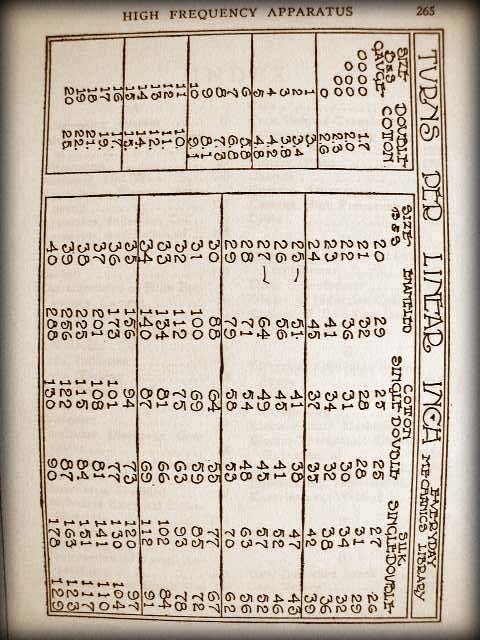 HIGH FREQUENCY APPARATUS 265
TURNS PER LINEAR INCH EVERYDAY MECHANICS LIBRARY
SIZE B&S GAUGE DOUBLE COTTON
0000 1.7
000 2.0
00 2.3
0 2.6
1 3.
2 3.4
3 3.8
4 4.2
5 4.8
6
7
8
9
10 9.1
11 10.
12
13
14
15
16 17.
17 19.
18 21.
19 22.
20 25.
SIZE B&S ENAMELED COTTON SINGLE DOUBLE SILK SINGLE DOUBLE
20 29 25 25 27 26
21 32 28 28 31 29
22 36 31 30 34 32
23 41 34 32 38 36
24 45 37 35 42 39
25 51 41 38 47 43
26 56 45 41 52 46
27 64 49 45 57 52
28 71 54 48 63 56
29 79 58 53 70 62
30 88 64 55 77 67
31 100 69 59 85 72
32 112 75 63 93 78
33 134 81 66 102 84
34 140 87 69 112 91
35 156 94 73 120 97
36 173 101 77 130 104
37 201 108 81 141 110
38 225 115 84 151 117
39 256 122 87 163 123
40 288 130 90 178 129